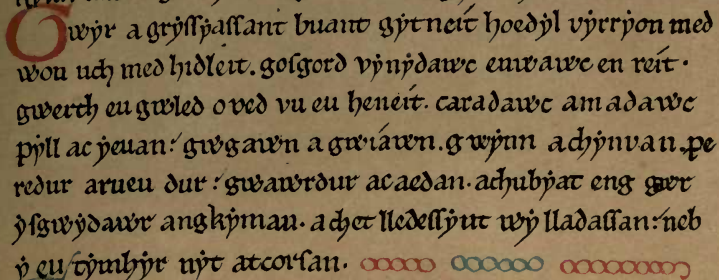 Gwyr a gryssyassant buant gytneit hoedyl vyrryon med
won uch med hidleit. gosgord vynydawc enwawc en reit.
gwerth eu gwled o ved vu eu heneit. caradawc amadawc
pyll ac yeuan. gwgawn a gwiawn. gwynn a chynvan. pe
redur arueu dur. gwawrdur ac aedan. achubyat eng gwr
ysgwydawr angkyman. a chet lledessynt wy lladassan. neb
y eu tymhyr nyt atcorsan.